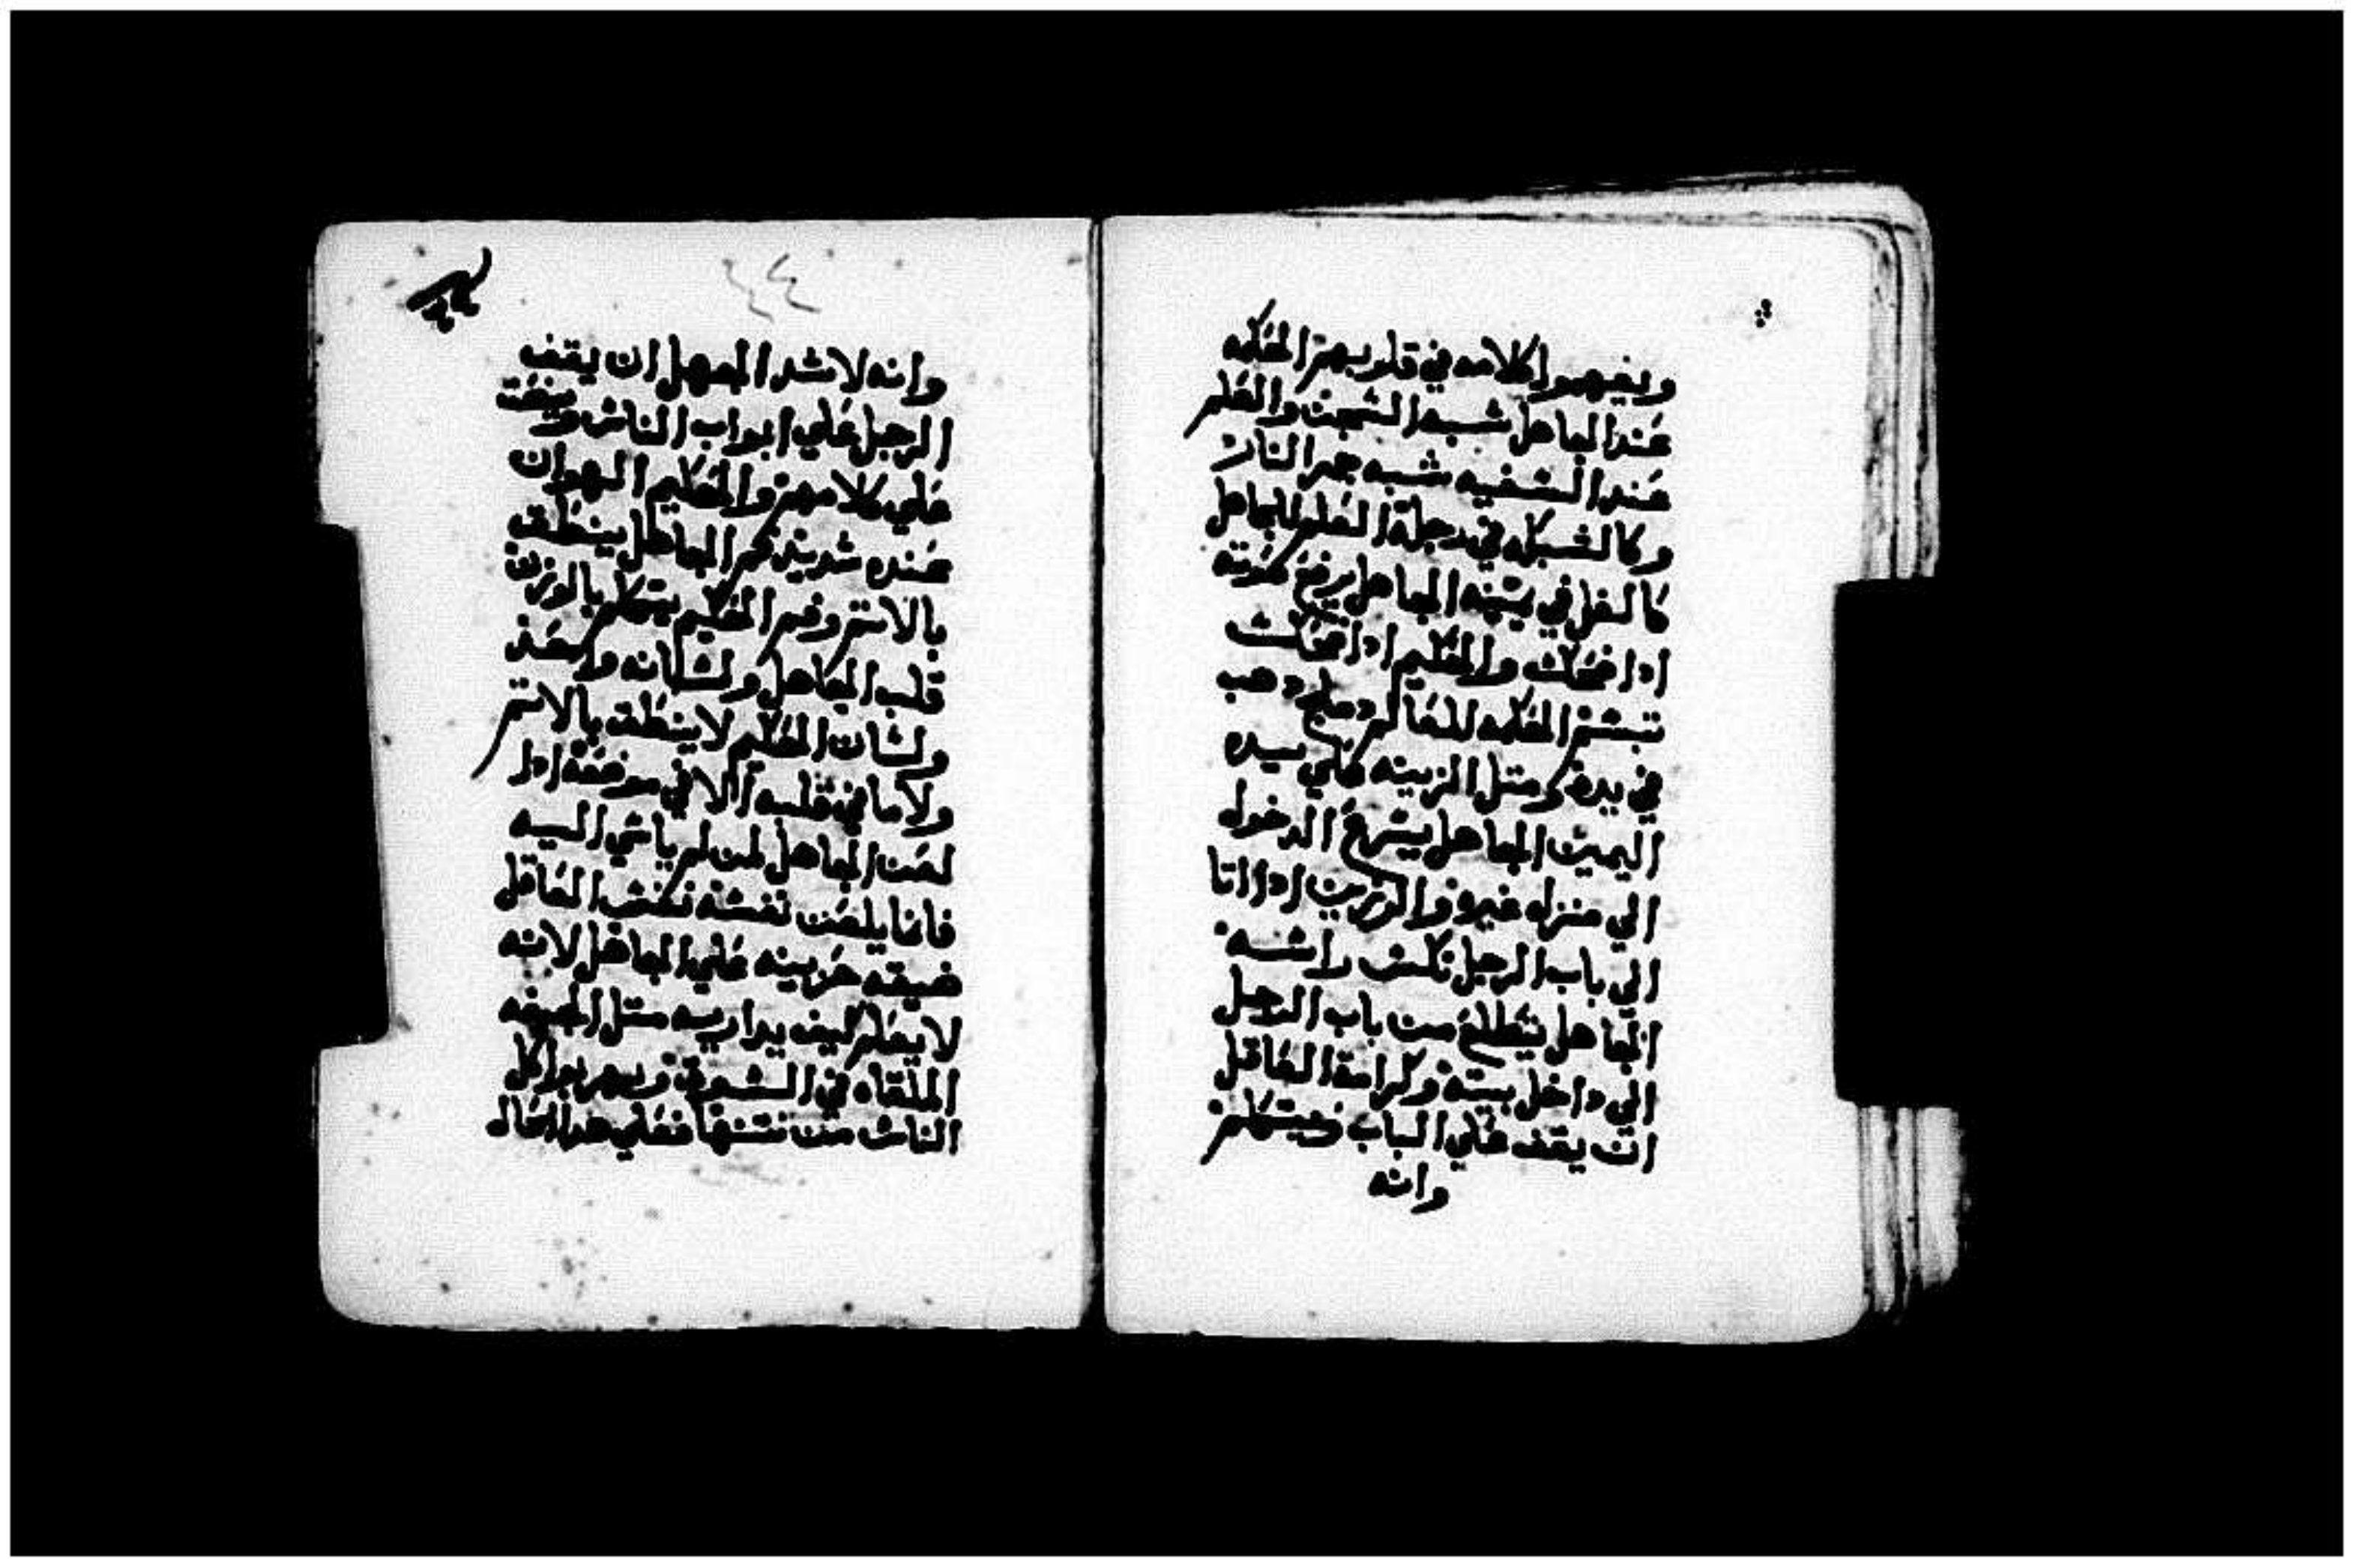 ويفهموا كلامه في قلوبهم الحكمه
عند الجاهل شبه السجن والعلم
عند السفيه شبه جمر النار
وكالشبكه في رجلة العلم للجاهل
كالغل في يمينه الجاهل يرفع صوته
ادا ضحك والحكيم ادا ضحك
تبسم الحكمه للعالم دملج دهب
في يده ومتل الزينه علي يده
اليمين الجاهل يسرع الدخول
الي منزل غيره والرزين ادا اتا
الي باب الرجل نكس راسه
الجاهل يتطلع من باب الرجل
الي داخل بيته وكرامة العاقل
ان يقف علي الباب ويتكلم
وانه
٢٤
وانه لاشد الجهل ان يقف
الرجل علي ابواب الناس وينصت
علي كلامهم والحكيم الهوان
عنده شديد فم الجاهل ينطق
بالاتم وفم الحكيم يتكلم بالوزن
قلب الجاهل ولسانه واحد
ولسان الحكيم لا ينطق بالاتم
ولا ما في قلبه الا في موضعه ادا
لعن الجاهل لمن لم ياسي اليه
فانما يلعن نفسه نفس العاقل
ضيقه حزينه علي الجاهل لانه
لا يعلم كيف يداريه متل الجيفه
الملقاه في السوق ويهربوا كل
الناس من نتنها فعلي هدا الحال